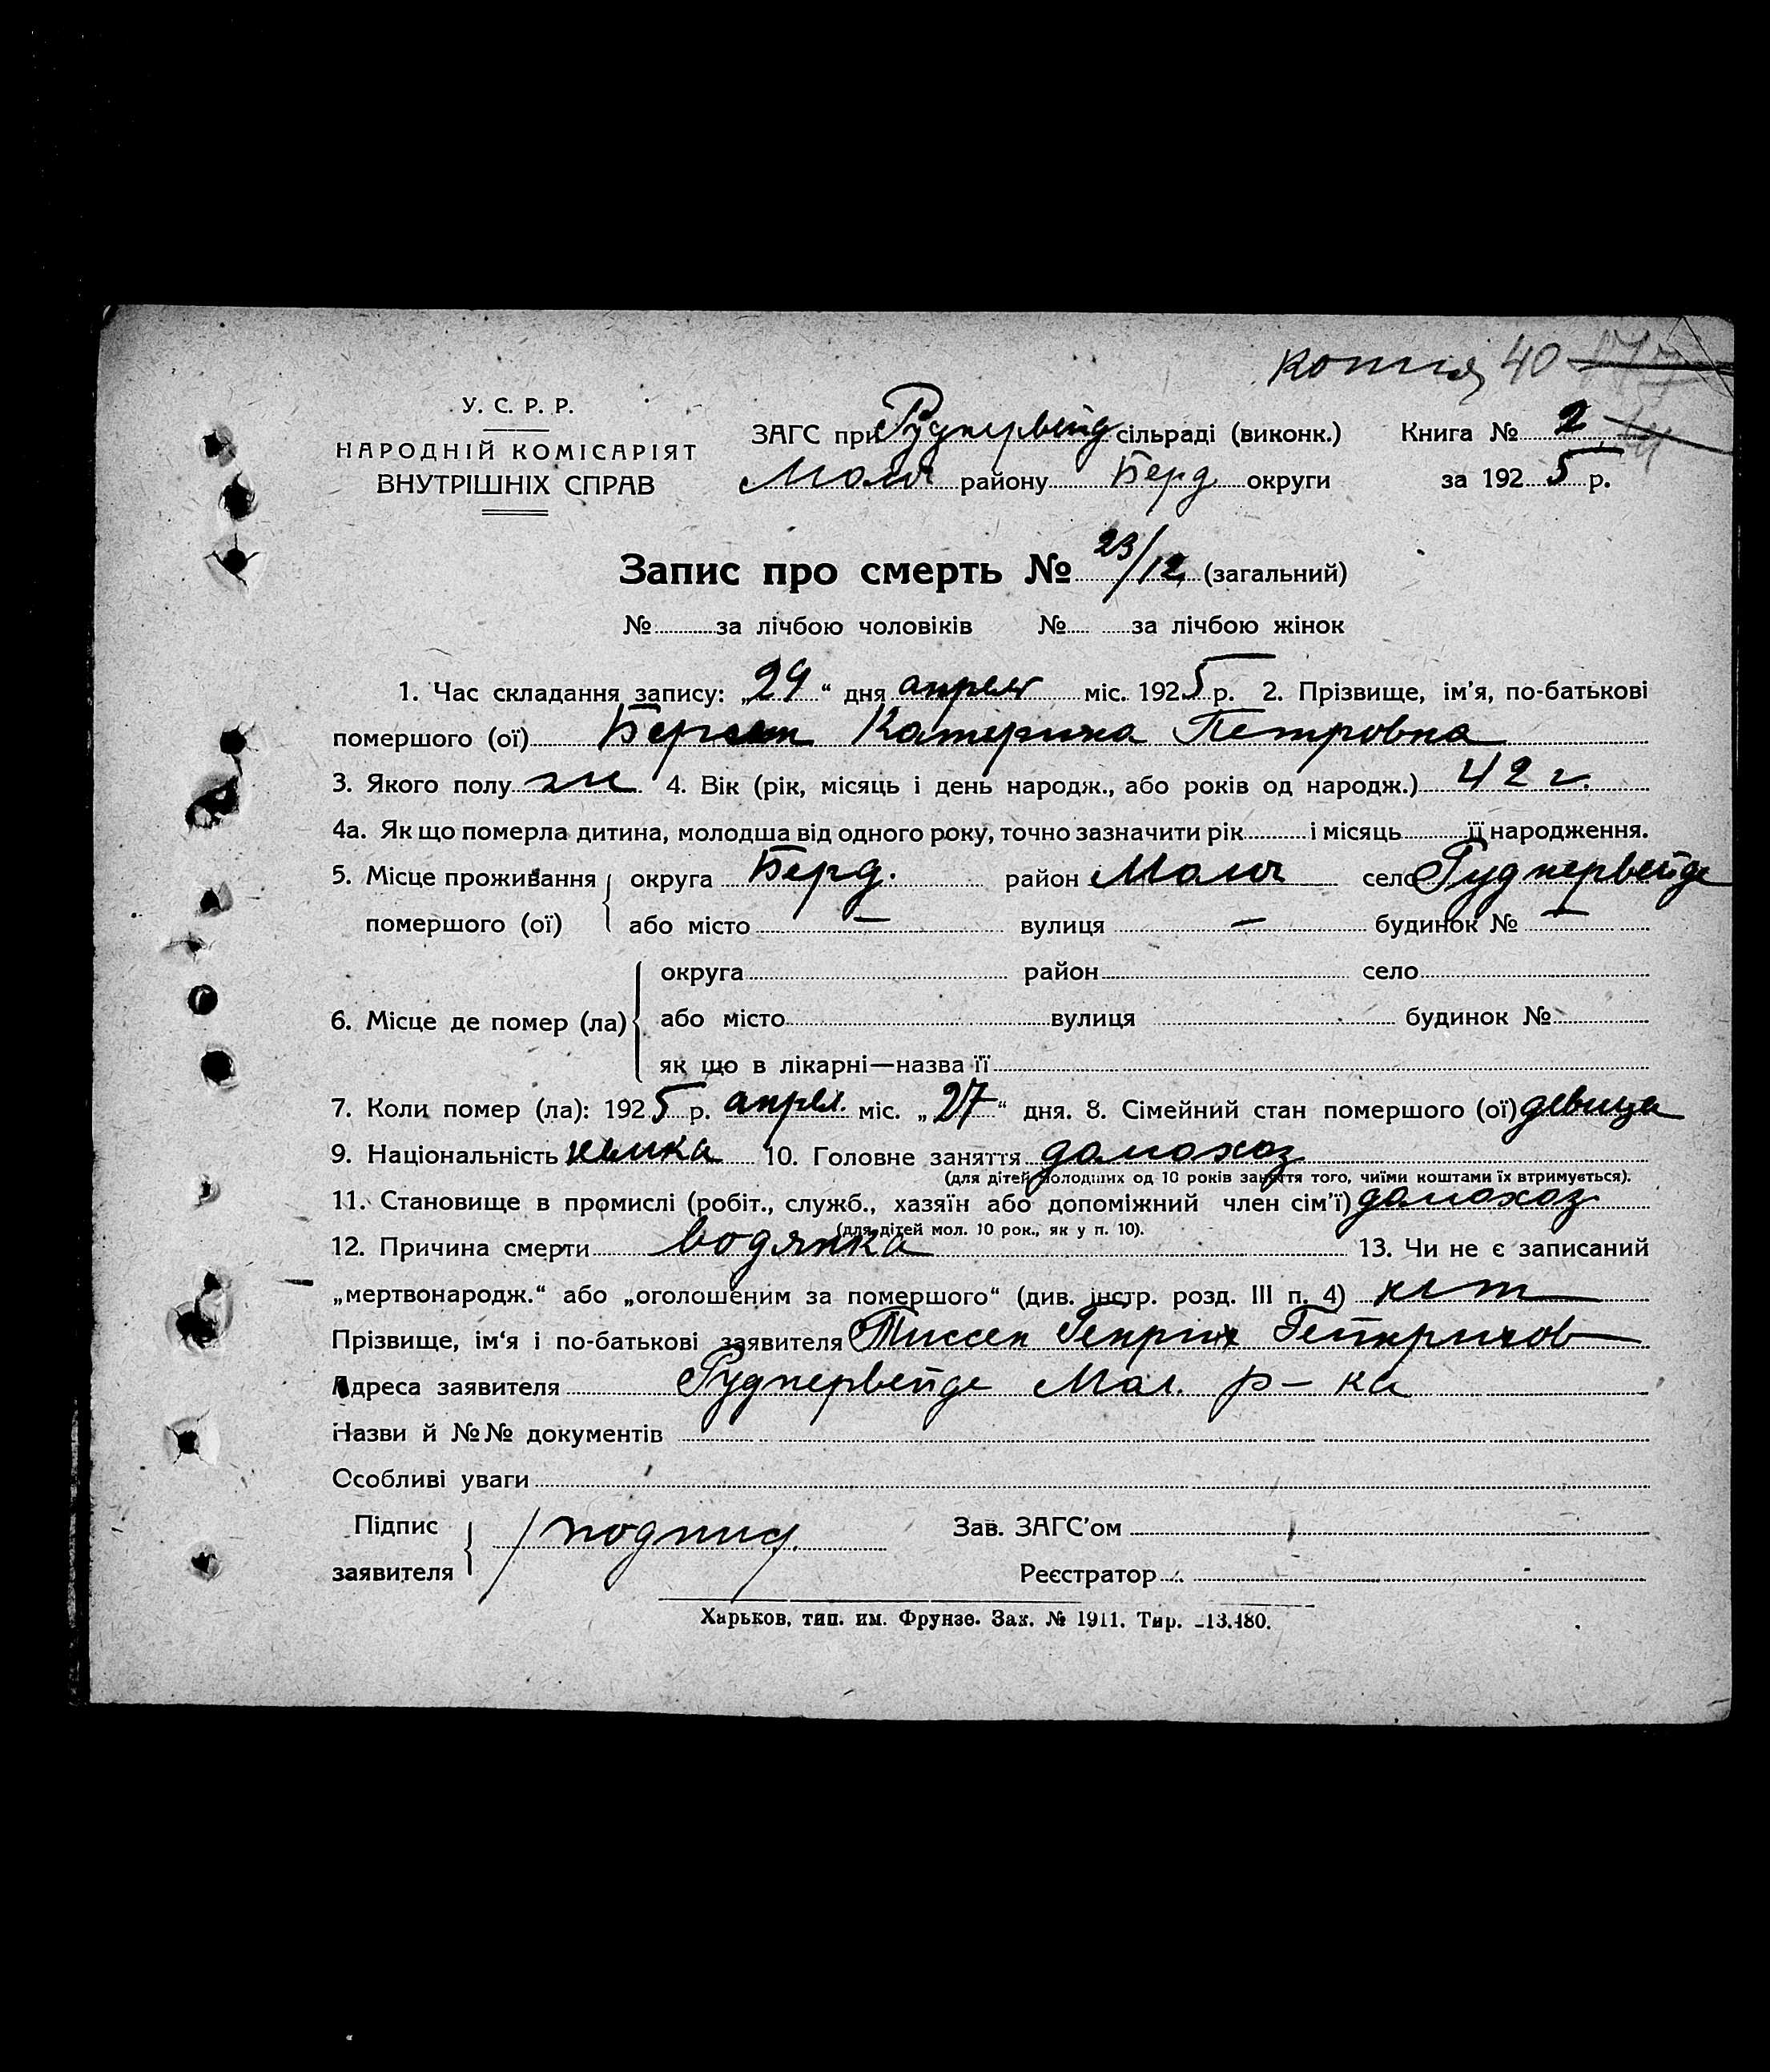 копия 40
У. С. Р. Р.
НАРОДНІЙ КОМІСАРІЯТ
ВНУТРІШНІХ СПРАВ
ЗАГС при Руднервейд сільраді (виконк.) Книга № 2
Молоч району Берд округи за 1925 р.
Запис про смерть № 23/12 (загальний)
№ за лічбою чоловіків № за лічбою жінок
1. Час складання запису: „29“ дня апреля міс. 1925 р. 2. Прізвище, ім'я, по-батькові
помершого (ої) Катерина Петровна
3. Якого полу ж 4. Вік (рік, місяць і день народж., або років од народж.) 42 г.
4а. Як що померла дитина, молодша від одного року, точно зазначити рік і місяць її народження.
5. Місце проживання округа Берд. район Молоч село Руднервейде
помершого (ої) або місто — вулиця — будинок № —
округа район село
6. Місце де помер (ла) або місто вулиця будинок №
як що в лікарні—назва її
7. Коли помер (ла): 1925 р. апрел. міс. „27“ дня. 8. Сімейний стан помершого (ої) девица
9. Національність немка 10. Головне заняття домохоз
(для дітей молодших од 10 років заняття того, чиїми коштами їх втримується).
11. Становище в промислі (робіт., служб., хазяїн або допоміжний член сім'ї) домохоз
(для дітей мол. 10 рок., як у п. 10).
12. Причина смерти водянка 13. Чи не є записаний
„мертвонародж.“ або „оголошеним за помершого“ (див. інстр. розд. III п. 4) нет
Прізвище, ім'я і по-батькові заявителя Тиссен Генрих Гейнрихов
Адреса заявителя Руднервейде Мол. р-ка
Назви й №№ документів
Особливі уваги
Підпис / подпис Зав. ЗАГС'ом
заявителя Реєстратор
Харьков, тип. им. Фрунзе. Зак. № 1911. Тир. 13.480.